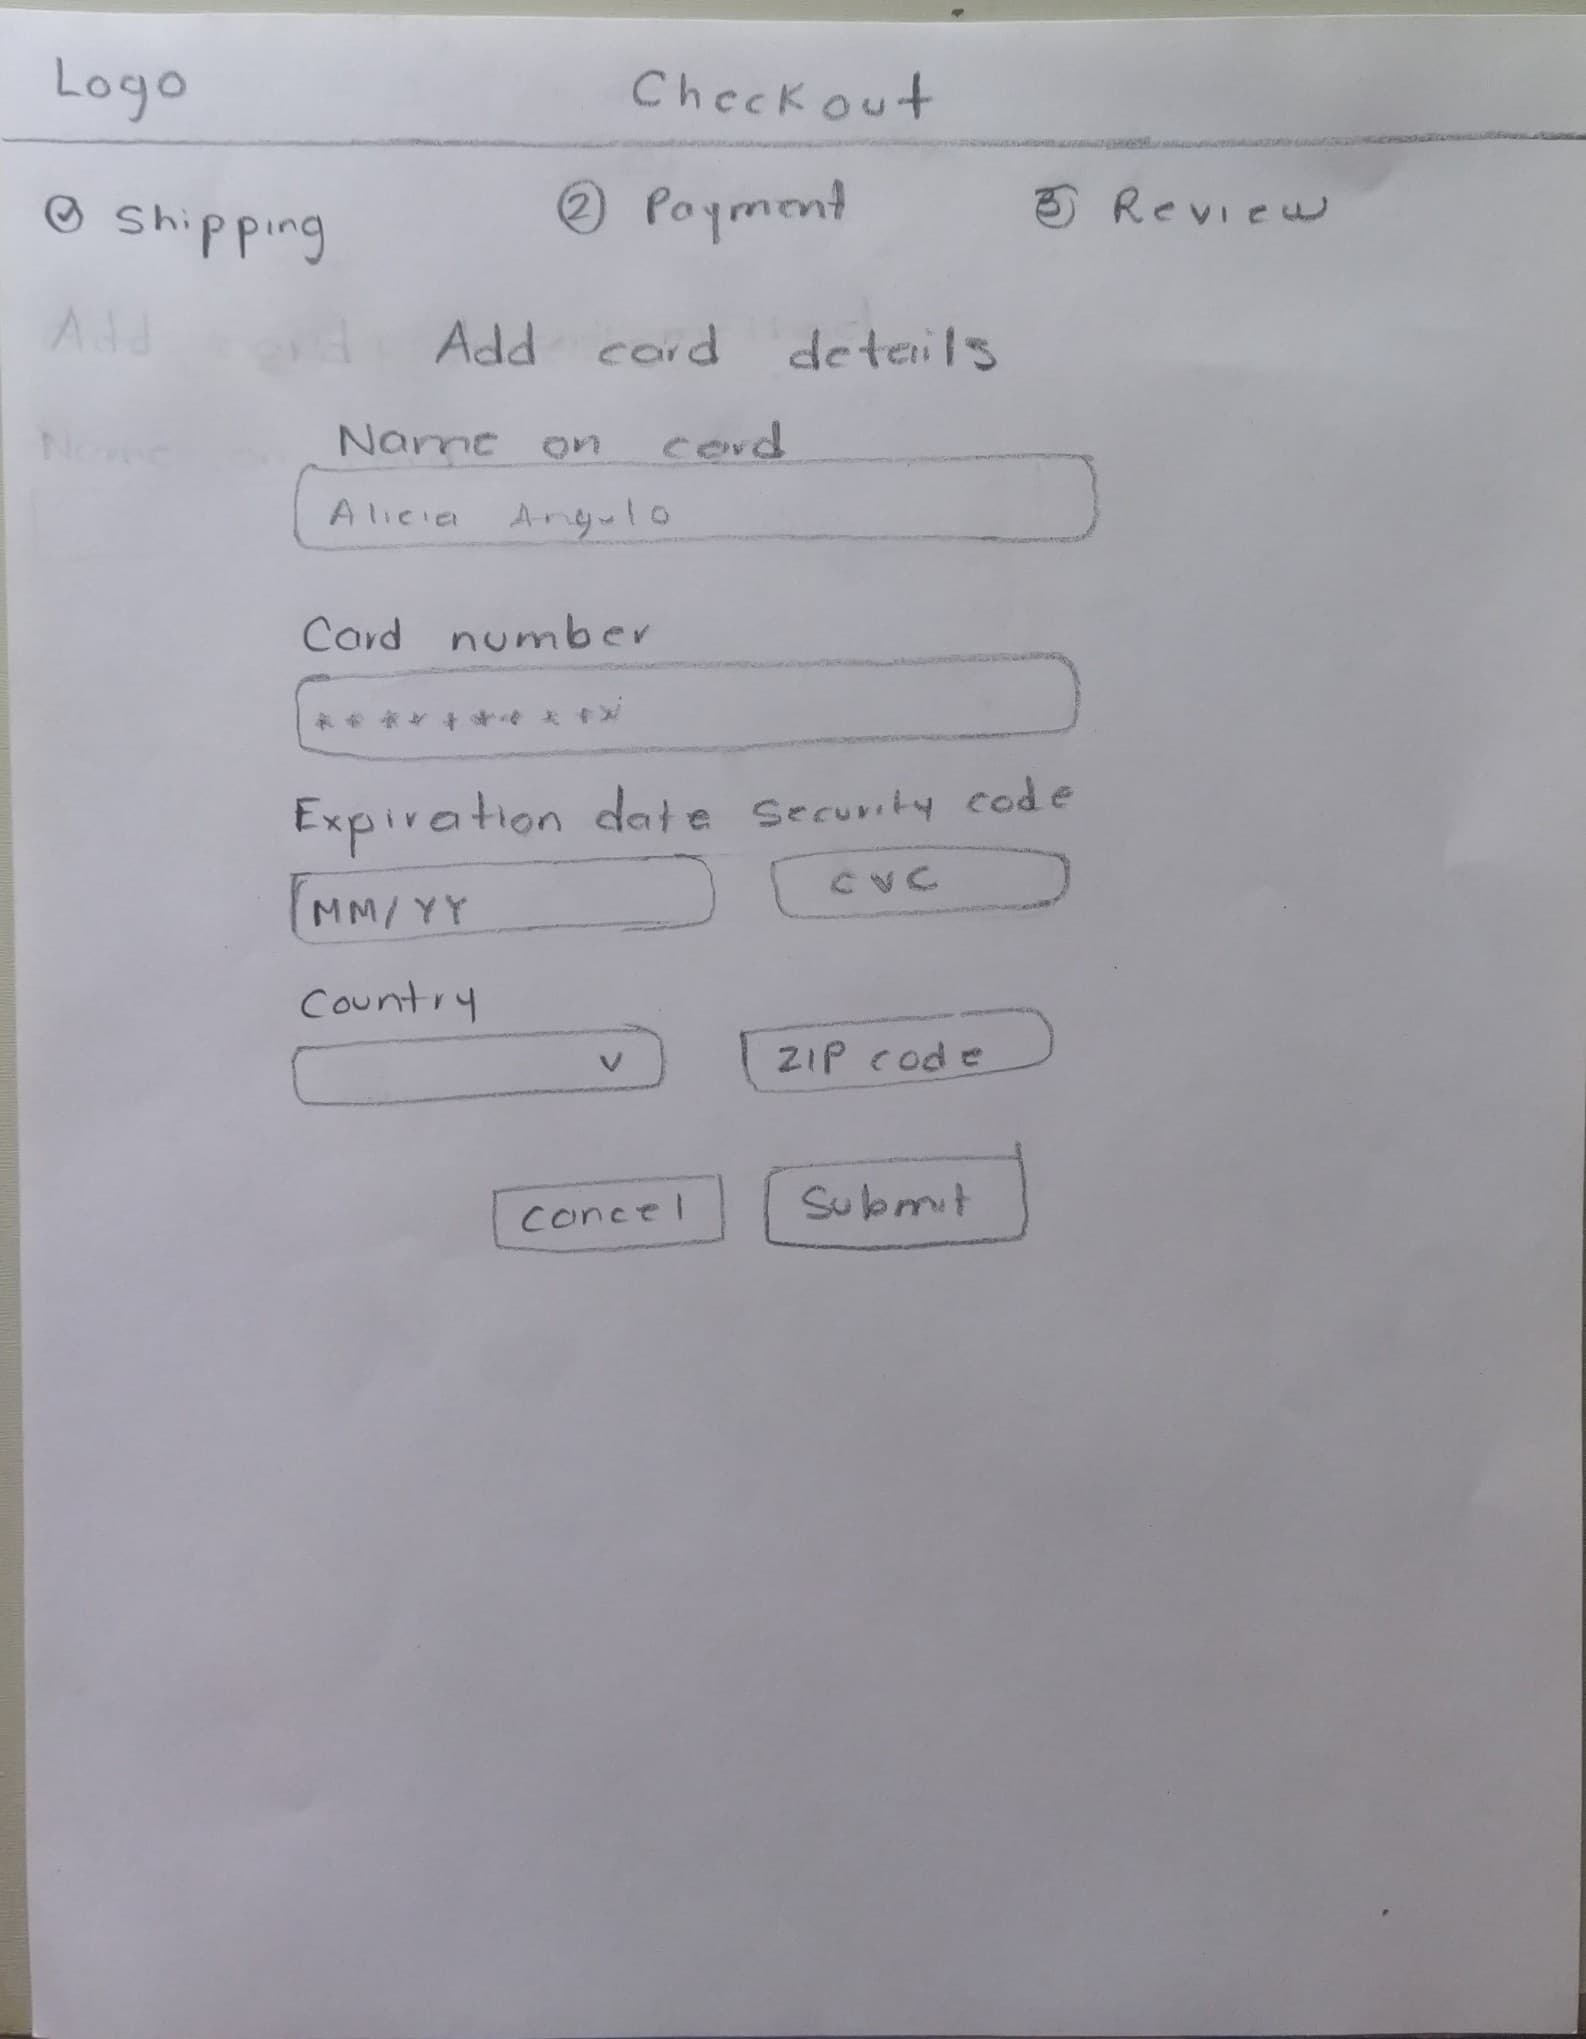 Logo Checkout
Shipping ② Payment ③ Review
Add card details
Name on card
Alicia Angulo
Card number
**********
Expiration date Security code
MM/YY CVC
Country
ZIP code
Cancel Submit